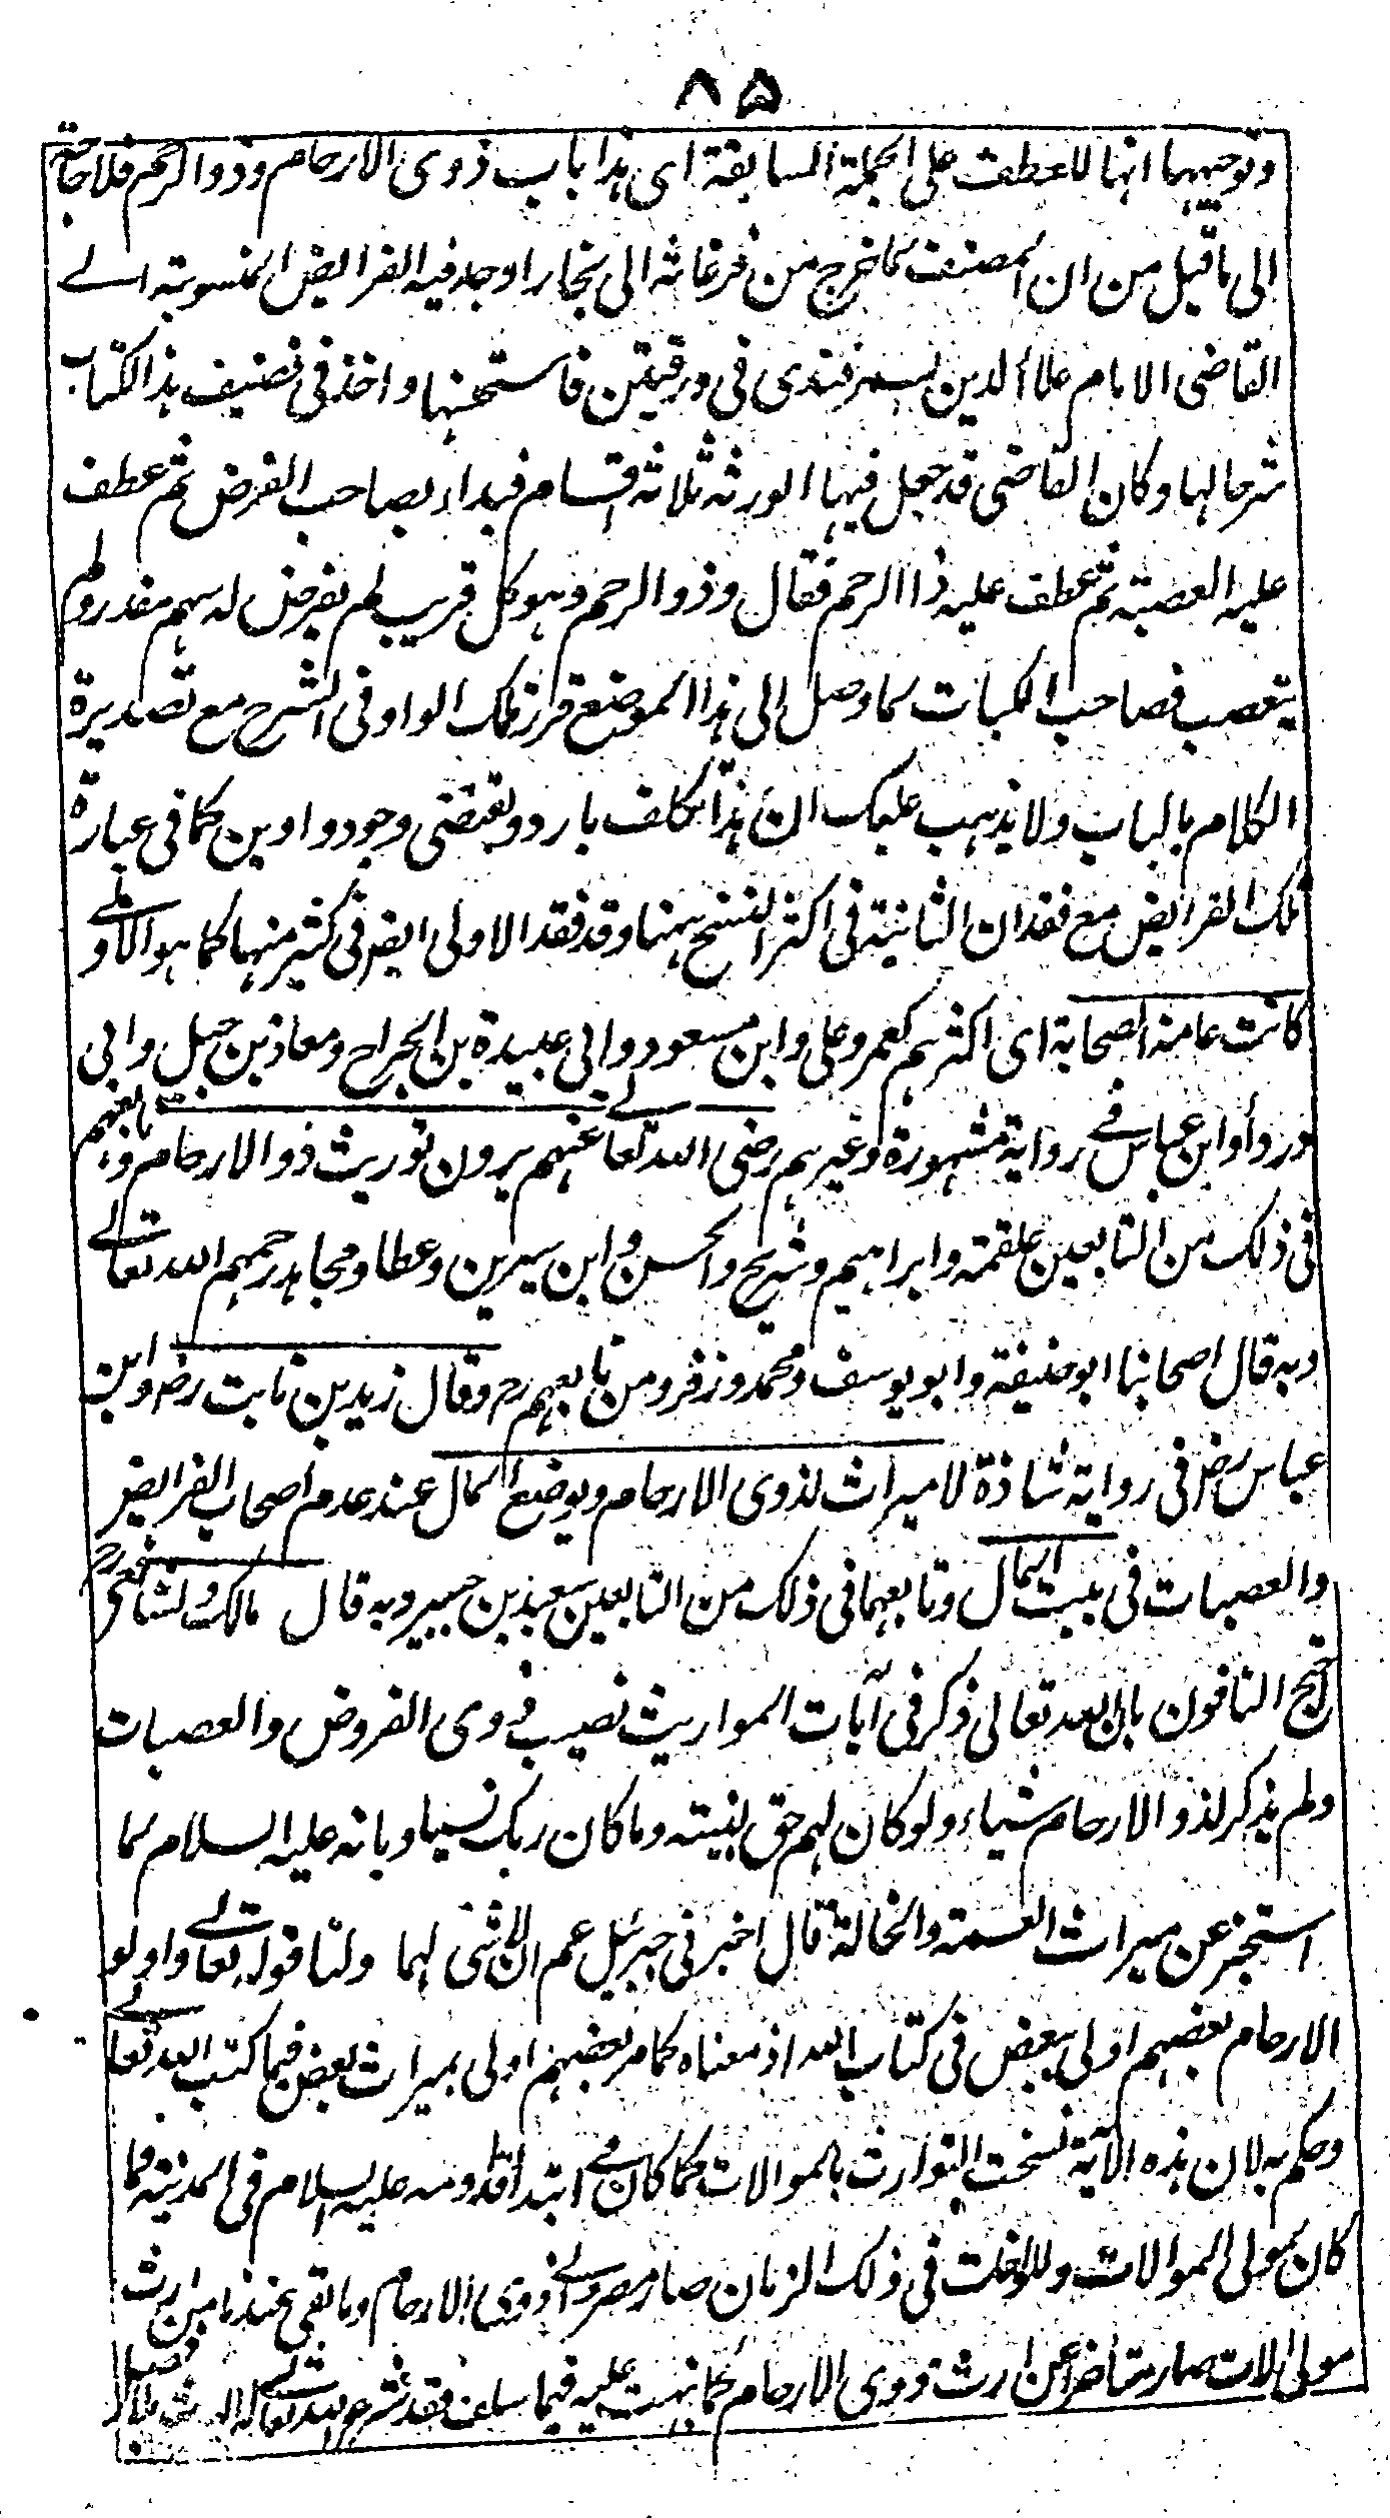 ٨٥
وتوجيهها انها للعطف على الجملة السابقة اى هذا باب ذوى الارحام وذو الرحم فلا حاجة
الى ما قيل من ان المصنف لما خرج من فرغانه الى بخارا وجد فيه الفرايض المنسوبة الے
القاضى الامام علاأ الدين السمرقندى فى ورقيتن فاستحسنها واخذ فى تصنيف هذا الكتاب
شرحا لها وكان القاضى قد جعل فيها الورثه ثلاثه اقسام فبداء بصاحب الفرض ثم عطف
عليه العصبته ثم عطف عليه ذا الرحم فقال وذو الرحم وهو كل قريب لم يفرض له سهم مقدر ولم
يتعصب فصاحب الكباب لما وصل الى هذا الموضع قرر تلك الواو فى الشرح مع تصديرة
الكلام بالباب ولا يذهب عليك ان هذا تكلف بارد ويقتضى وجود واوين كما فى عبارة
تلك الفرايض مع فقدان الثانية فى اكثر النسخ ههنا وقد فقد الاولى ايضا فى كثير منها كما هو الاولے
كانت عامة الصحابة اى اكثرهم كعمر وعلى وابن مسعود وابى عبيدة بن الجراح ومعاذ بن جبل وابى
دردأ وابن عباس فے رواية مشهورة وغيرهم رضى الله تعالے عنهم يرون توريث ذو الارحام وتابعهم
فى ذلك من التابعين علقمة وابراهيم وشريح والحسن وابن سيرين وعطا ومجاهد رحمهم الله تعالے
وبه قال اصحابنا ابو حنيفة وابو يوسف ومحمد وزفر ومن تابعهم رح وقال زيد بن ثابت رض وابن
عباس رض فى رواية شاذة لا ميراث لذوى الارحام ويوضع المال عند عدم اصحاب الفرايض
والعصبات فى بيت المال وتابعهما فى ذلك من التابعين سعيد بن جبير وبه قال مالك والشافعى رح
احتج النافون بان الله تعالى ذكر فى آيات المواريث نصيب ذوى الفروض والعصبات
ولم يذكر لذو الارحام شياء ولو كان لهم حق لبينته وما كان ربك نسيا وبانه عليه السلام لما
استخبر عن ميراث العمة والخالة قال اخبرنى جبرئيل عم ان لا شئ لهما ولنا قوله تعالے واولو
الارحام بعضهم اولى ببعض فى كتاب الله اذ معناه كما مر بعضهم اولى بميراث بعض فيما كتب الله تعالے
وحكم به لان هذه الآية نسخت التوارث بالموالات كما كان فے ابتدأ قدومه عليه السلام فى المدينة فما
كان لمولى الموالات فى ذلك الزمان صار مصروفا الے ذوى الارحام وما بقى عندنا من ارث
مولى الالات صار متأخرا عن ارث ذوى الارحام كما نبهت عليه فيما سلف فقد شرع الله تعالے